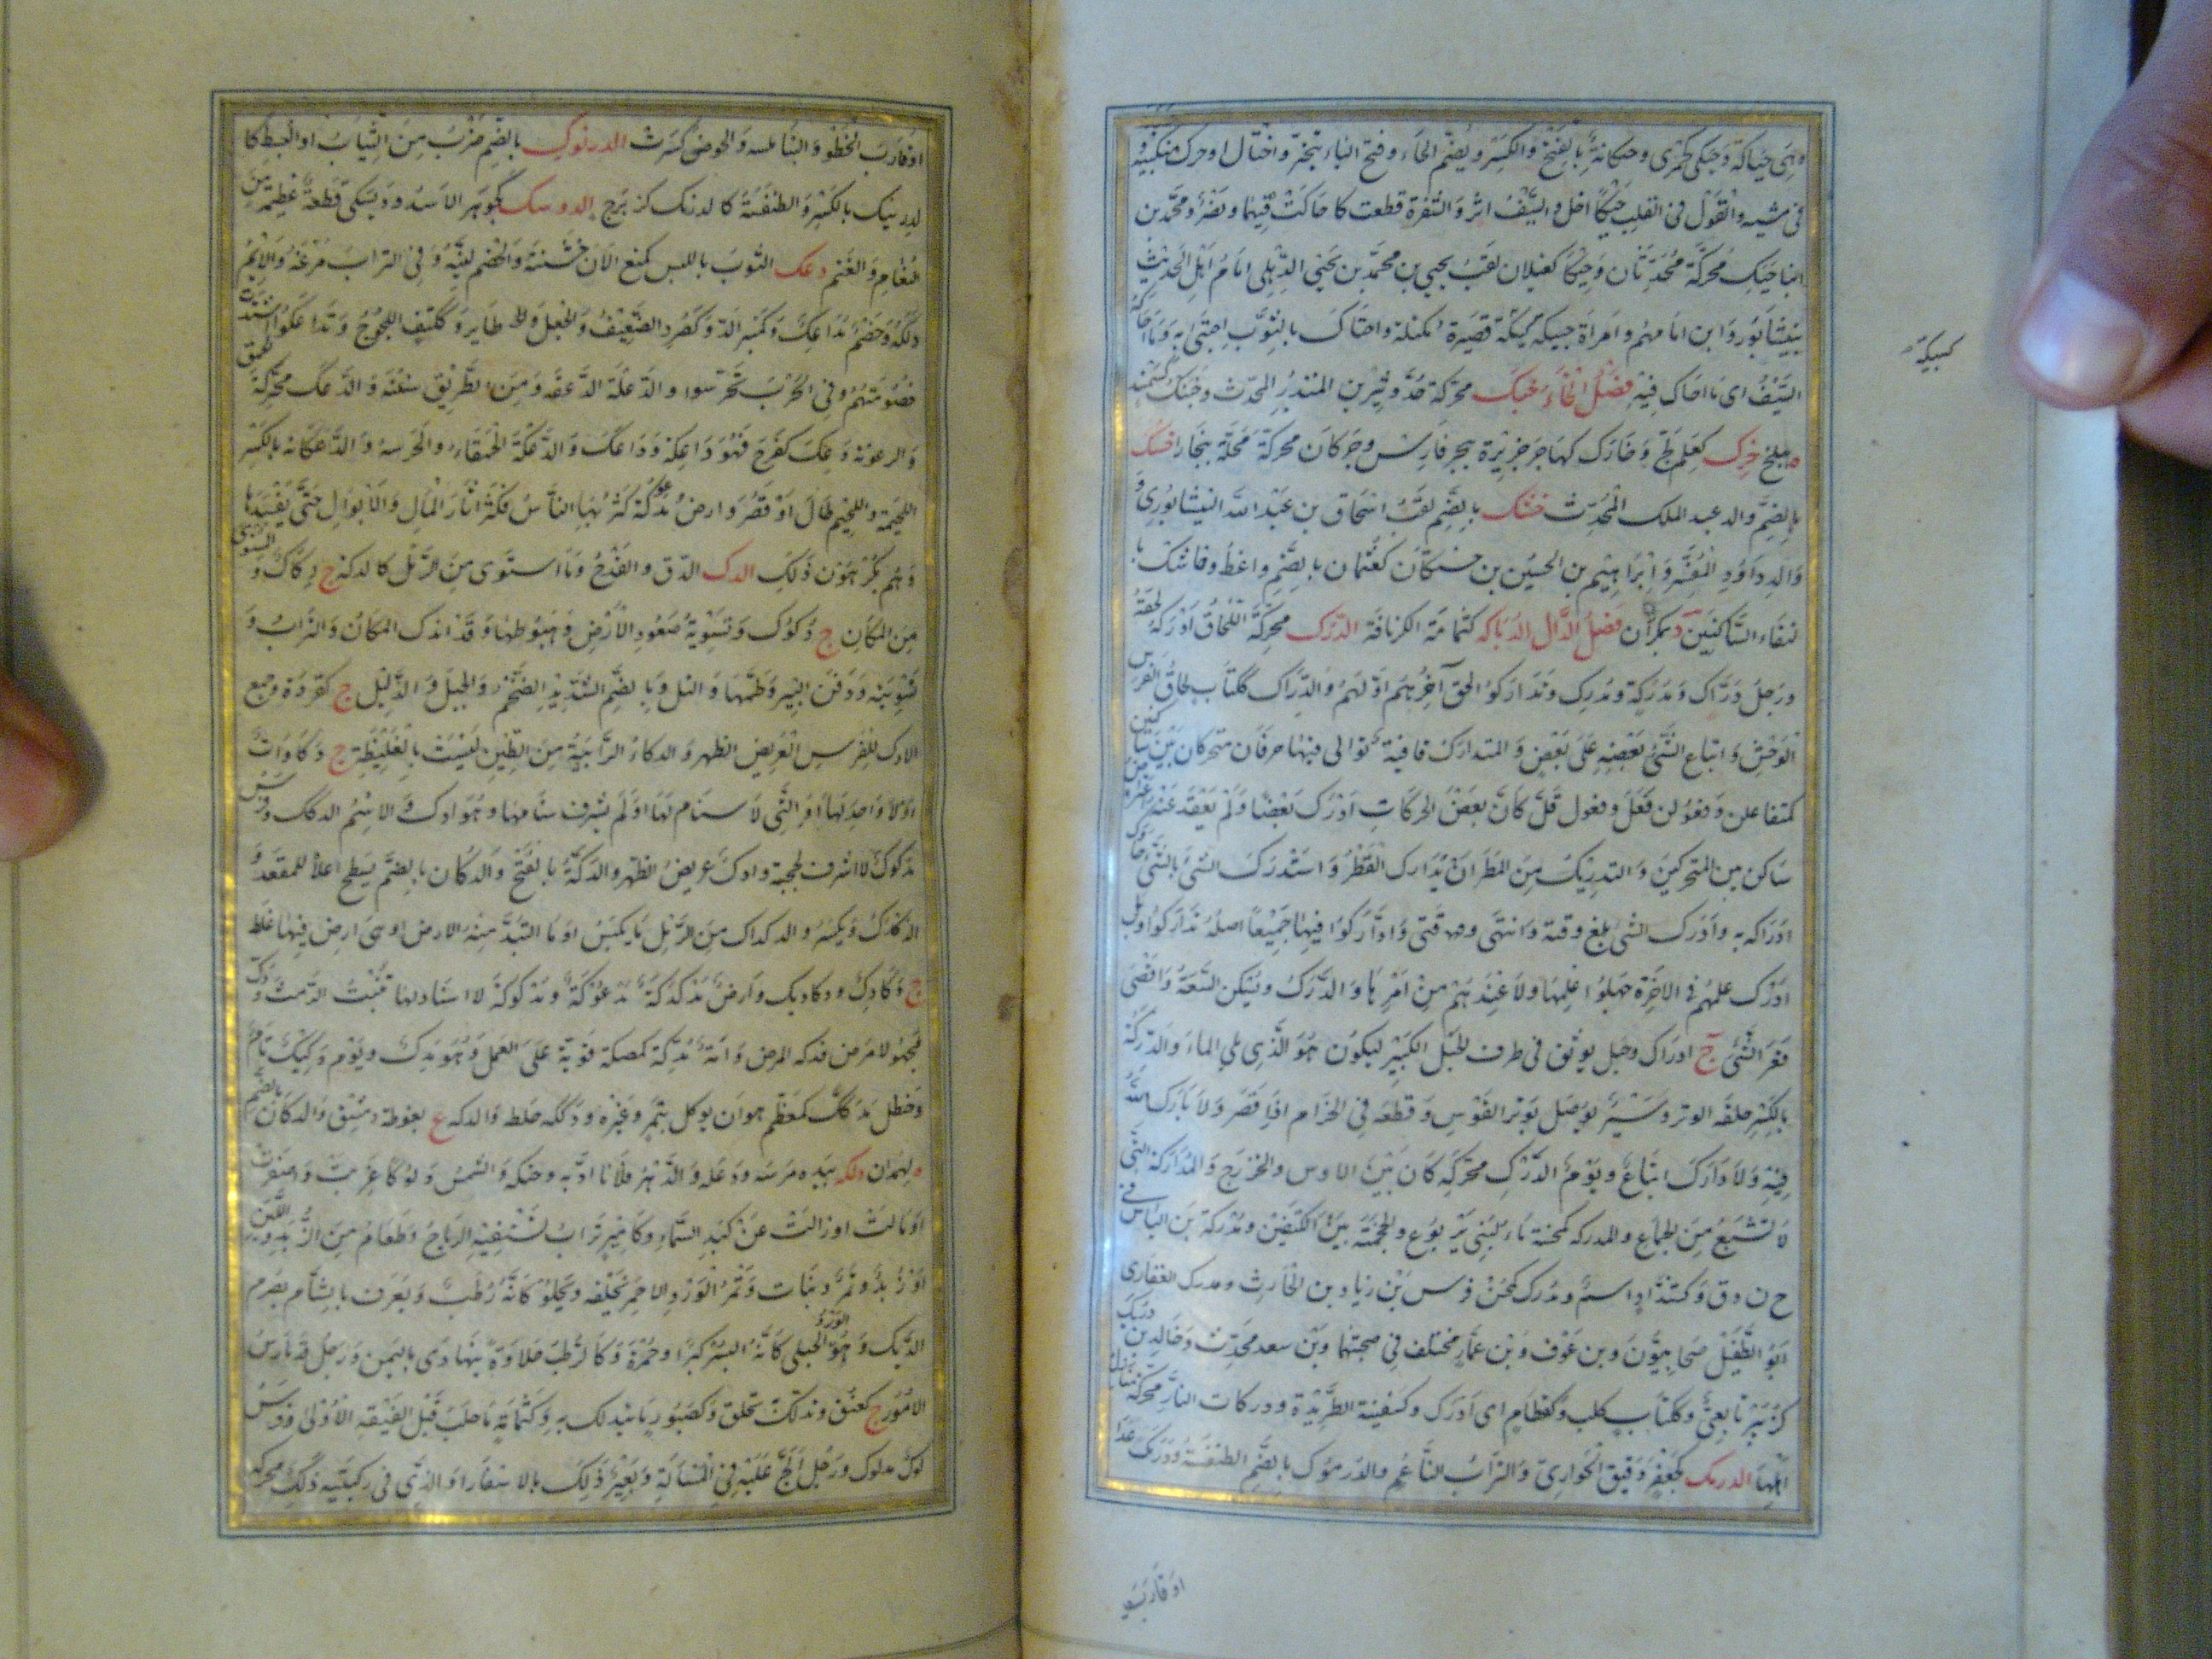 وهي حياكة وحيكى كجمزى وحيكانة بالفتح والكسر وبضم الحاء وفتح الياء تبختر واختال او حرك منكبيه و
في مشيه والقول في القلب حيكا اخذ والسيف اثر والشفرة قطعت كاحاكت فيهما ونضر ومحمد بن
ابنا حيك محركة محدثان وحيكان كغيلان لقب يحيى بن محمد بن يحيى الذهلي امام اهل الحديث
بنيشابور وابن امامهم وامراة حييكة كييكة قصيرة مكتلة واحتاك بالثوب احتبى به وما احاكه
كييكة
السيف اى ما احاك فيه فصل الخاء خبك محركة جد وثير بن المنذر المحدث وخبنك كسمند
ه ببلخ خرك كعلم لج وخارك كهاجر جزيرة ببحر فارس وخركان محركة محلة ببخارا خسك
بالضم والد عبد الملك المحدث خشك بالضم لقب اسحاق بن عبد الله النيشابوري و
والد داود المفسر وابراهيم بن الحسين بن خسكان كعثمان بالضم واعظ وخاشك با
لتقاء الساكنين د بمكران فصل الدال الدباكة كثمامة الكرنافة الدرك محركة اللحاق ادركه لحقه
ورجل دراك ومدركة ومدرك وتداركوا لحق آخرهم اولهم والدراك ككتاب لحاق الفرس
الوحش واتباع الشئ بعضه على بعض والمتدارك قافية توالى فيها حرفان متحركان بين ساكنين
كمتفاعلن وفعولن فعل وفعول فل كان بعض الحركات ادرك بعضا ولم يعقه عنه اعتراض
ساكن بين المتحركين والتدريك من المطر ان يدارك القطر واستدرك الشئ بالشئ حاول
ادراكه به وادرك الشئ بلغ وقته وانتهى وفنى وادّاركوا فيها جميعا اصله تداركوا وبل
ادرك علمهم في الاخرة جهلوا علمها ولا عند هم من امرها والدرك ويسكن التبعة واقصى
قعر الشئ ج ادراك وحبل يوثق في طرف الحبل الكبير ليكون هو الذي يلي الماء والدركة
بالكسر حلقة الوتر وسير يوصل بوتر القوس وقطعة في الحزام اذا قصر ولا بارك الله
فيه ولا دارك اتباع ويوم الدرك محركة كان بين الاوس والخزرج والمداركة التى
لا تشبع من الجماع والمدركة كمحسنة ماء لبني يربوع والحجمة بين الكتفين ومدركة بن الياس في
خ ن د ق وكشداد اسم ومدرك كمحسن فرس بن زياد بن الحارث ومدرك الغفاري
ابو الطفيل صحابيون وبن عوف وبن عمار مختلف في صحبتهما وبن سعد محدث وخالد بن دريك
كزبير تابعي وككتاب كلب وكقطام اى ادرك وكسفينة الطريدة ودركات النار محركة منازل
اهلها الدرمك كجعفر دقيق الحواري والتراب الناعم والدرموك بالضم الطنفسة ودرمك عدا
او قارب
او قارب الخطو والبناء ملسه والحوض كسرت الدرنوك بالضم ضرب من الثياب او البسط كا
لدرنيك بالكسر والطنفسة كالدرنك كزبرج الدوسك كجوهر الاسد وديسكى قطعة عظيمة من
النعام والغنم دعك الثوب باللبس كمنع الان خشنته والخصم لينه وفي التراب مرغه والاديم
دلكه وخصم مداعك وكمنبر الد وكصرد الضعيف والجعل ولك طاير وككتف اللجوج وتداعكوا اشتدت
خصومتهم وفي الحرب تمرسوا والدعكة الدعقة ومن الطريق سننه والدعك محركة الحمق
والرعونة دعك كفرح فهو داعكة وداعك والدعكة الحمقاء والجرسه والدعكانة بالكسر
اللحيمة واللحيم طال او قصر وارض مدعوكة كثر بها الناس فكثر اثار المال والابوال حتى يفسدها
وهم يكرهون ذلك الدك الدق والهدم وما استوى من الرمل كالدكة ج دكاك و
من المكان ج دكوك وتسوية صعود الارض وهبوطها وقد اندك المكان والتراب و
تسويته ودفن البير وطمها والتل وبالضم الشديد الضخم والجبل والذليل ج كقردة وجمع
الادك للفرس العريض الظهر والدكاء الرابية من الطين ليست بالغليظة ج دكاوات
او لا واحد لها او التي لا سنام لها او لم يشرف سنامها وهو ادك والاسم الدكك وفرس
مدكوك لا اشراف لحجبته وادك عريض الظهر والدكة بالفتح والدكان بالضم يسطح اعلاه للمقعد و
الدكدك ويكسر والدكداك من الرمل ما يكبس او ما التبد منه بالارض او هي ارض فيها غلظ
ج دكادك ودكاديك وارض مدكدكة مدعوكة ومدكوكة لا اسناد لها تنبت الرمث ودك
مجهولا مرض فدكه المرض وامة مدكة كمصكة قوية على العمل وهو مدك ويوم دكيك تام
وحنظل مدكك كمعظم هو ان يوكل بتمر وغيره ودككه خلطه والدكة ع بغوطة دمشق والدكان بالضم
ه بهمدان دلكه بيده مرسه ودعكه والدهر فلانا ادبه وحنكه والشمس دلوكا غربت واصفرت
او مالت او زالت عن كبد السماء وكامير تراب تسفيه الرياح وطعام من الزبد واللبن
او زبد وتمر ونبات وثمر الورد الاحمر يخلفه ويحلو كانه رطب ويعرف بالشام بصرم
الديك وهو الورد الجبلي كانه البسر كبرا وحمرة وكالرطب حلاوة يتهادى باليمن ورجل قد مارس
الامور ج كعنق وتدلك تخلق وكصبور ما يتدلك به وكثمامة ما حلب قبل الفيقة الاولى وفرس
مدلوك ورجل الح عليه في المسالة وبعير ذلك بالاسفار او الذي في ركبتيه دلك محركة